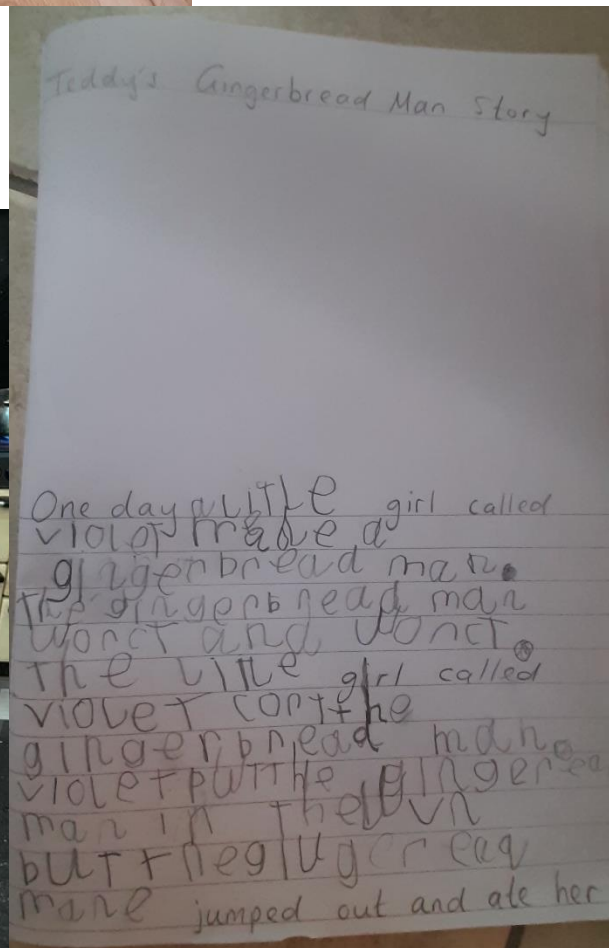 Teddy's Gingerbread Man Story
One day a LITLE girl called
violet made a
gingerbread man.
the gingerbread man
wonct and wonct.
the LITLE girl called
violet cort the
gingerbread man.
violet put the gingeread
man in the uvn
but the glugeread
mane jumped out and ate her